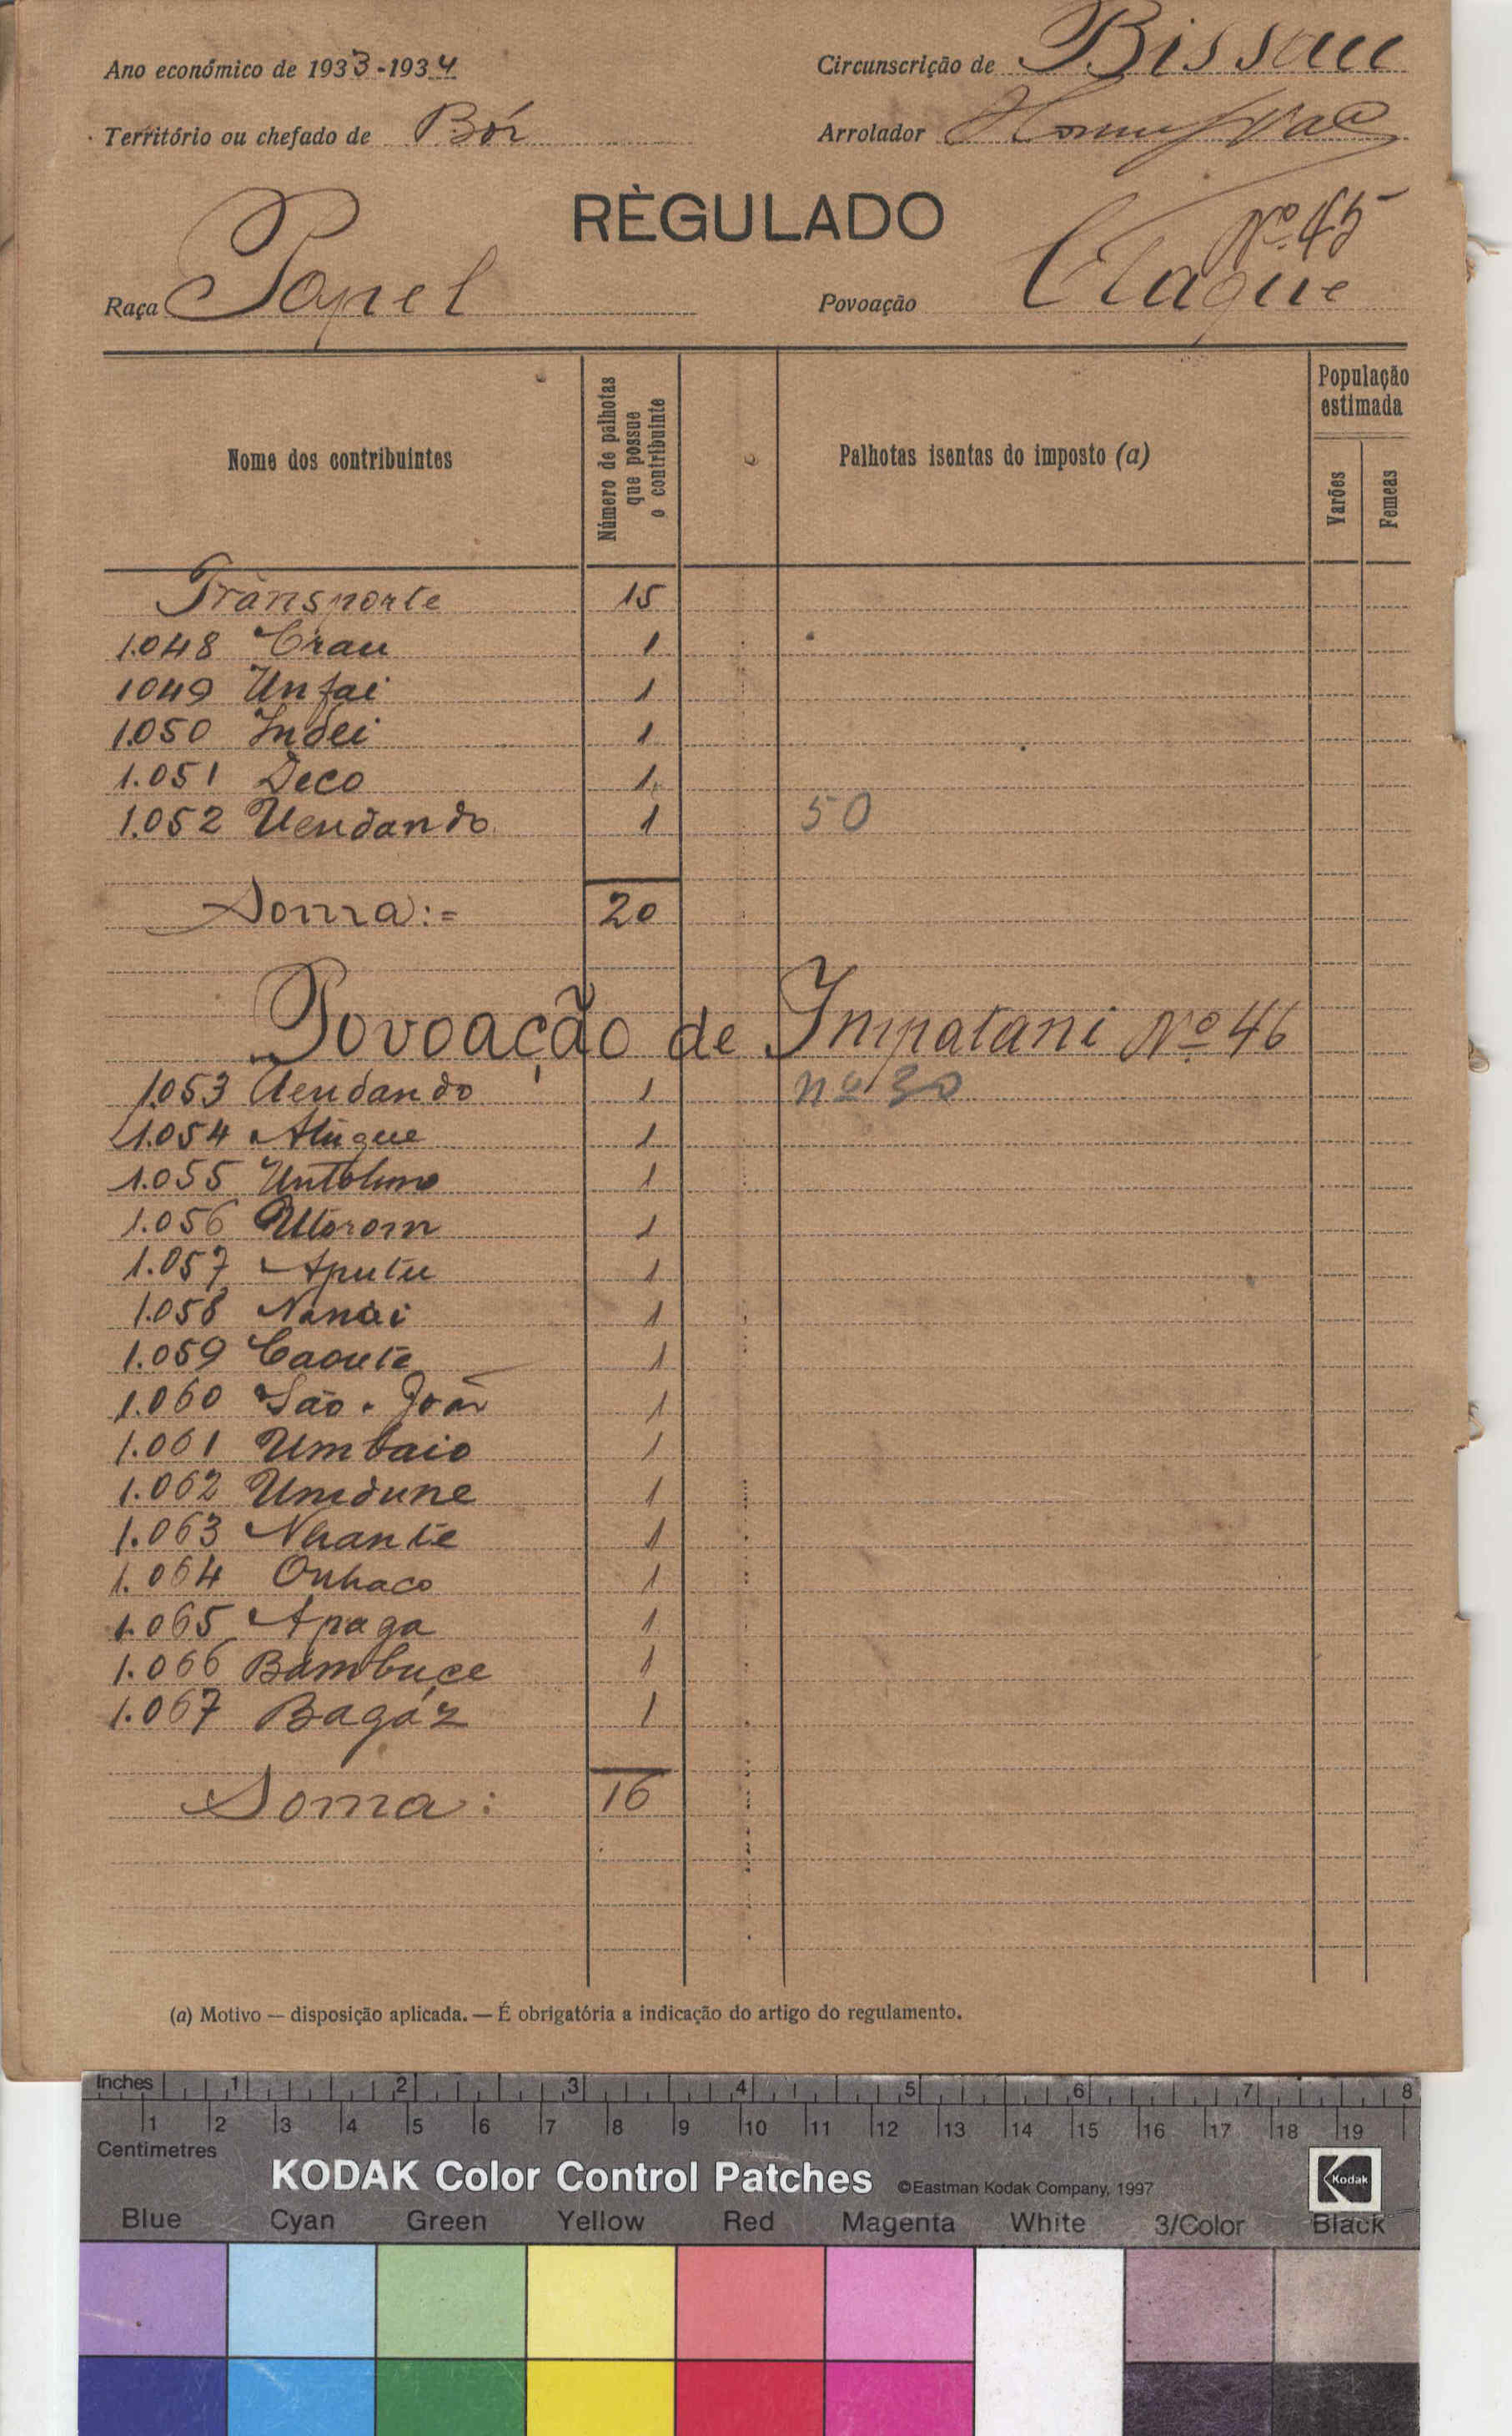 Ano económico de 1933-1934
Circunscrição de Bissau
Território ou chefado de Bór
Arrolador
RÈGULADO
Nº 45
Raça Papel
Povoação
Nome dos contribuintes
Número de palhotas que possue o contribuinte
Palhotas isentas do imposto (a)
População estimada
Varões
Femeas
Transporte 15
1.048 Crau 1
1049 Unfai 1
1.050 Indei 1
1.051 Deco 1
1.052 Uendando 1 50
Soma:= 20
Povoação de Impatani Nº 46
1.053 Uendando 1 nº 30
1.054 Atugue 1
1.055 1
1.056 1
1.057 Aputu 1
1.058 Nanai 1
1.059 Caoute 1
1.060 São. João 1
1.061 Umbaio 1
1.062 Umdune 1
1.063 Nhante 1
1.064 Onhaco 1
1.065 Apaga 1
1.066 Bámbuçe 1
1.067 Bagáz 1
Soma: 16
(a) Motivo — disposição aplicada. — É obrigatória a indicação do artigo do regulamento.
Inches 1 2 3 4 5 6 7 8
1 2 3 4 5 6 7 8 9 10 11 12 13 14 15 16 17 18 19
Centimetres
KODAK Color Control Patches ©Eastman Kodak Company, 1997 Kodak
Blue Cyan Green Yellow Red Magenta White 3/Color Black